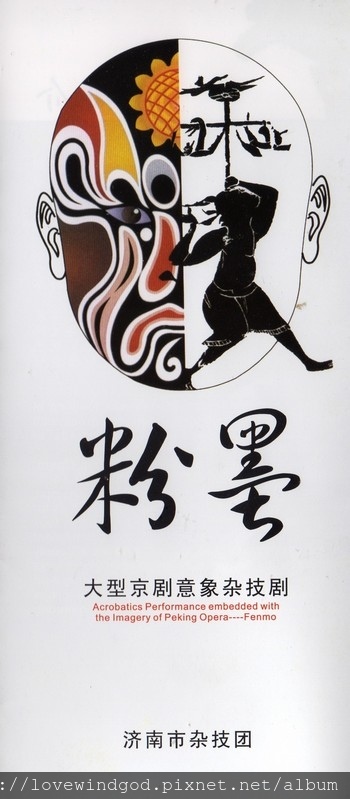 粉墨
大型京剧意象杂技剧
Acrobatics Performance embedded with
the Imagery of Peking Opera----Fenmo
济南市杂技团
://lovewindgod.pixnet.net/album